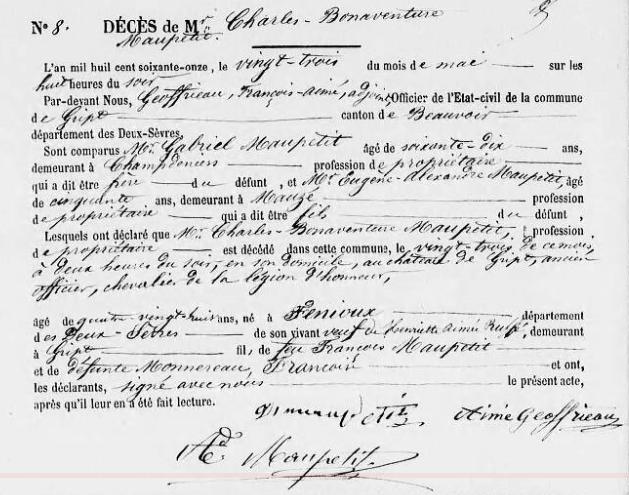 N° 8. DÉCÈS de Mr Charles-Bonaventure
Maupetit.
L'an mil huit cent soixante-onze, le vingt-trois du mois de mai sur les
huit heures du soir
Par-devant Nous, Geoffrieau, François-aimé, adjoint, Officier de l'Etat-civil de la commune
de Gript canton de Beauvoir
département des Deux-Sèvres,
Sont comparus Mr Gabriel Maupetit âgé de soixante-dix ans,
demeurant à Champdeniers profession de propriétaire
qui a dit être père du défunt, et Mr Eugène-alexandre Maupetit, âgé
de cinquante ans, demeurant à Mauzé profession
de propriétaire qui a dit être fils du défunt,
Lesquels ont déclaré que Mr Charles-Bonaventure Maupetit, profession
de propriétaire est décédé dans cette commune, le vingt-trois de ce mois,
à deux heures du soir, en son domicile, au château de Gript, ancien
officier, chevalier de la légion d'honneur,
âgé de quatre-vingt-huit ans, né à Fenioux département
des Deux-Sèvres de son vivant veuf de henriette Aimée, demeurant
à Gript fils de feu François Maupetit
et de défunte Monnereau, Françoise et ont,
les déclarants, signé avec nous le présent acte,
après qu'il leur en a été fait lecture.
Aimé Geoffrieau
Ad Maupetit